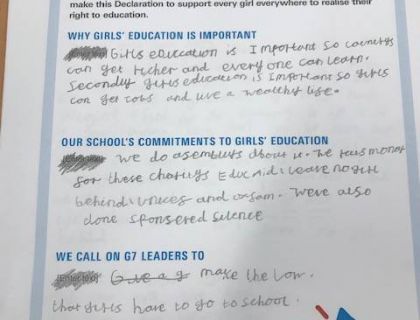 make this Declaration to support every girl everywhere to realise their
right to education.
WHY GIRLS' EDUCATION IS IMPORTANT
Girls education is Important so countrys
can get richer and every one can learn.
Secondly girls education is Important so girls
can get Jobs and live a wealthy life.
OUR SCHOOL'S COMMITMENTS TO GIRLS' EDUCATION
we do asemblys about it. We raus money
for these charitys Educaid, leave no girl
behind, unices and oxfam. Weve also
done sponsered silence
WE CALL ON G7 LEADERS TO
make the law.
that girls have to go to school.